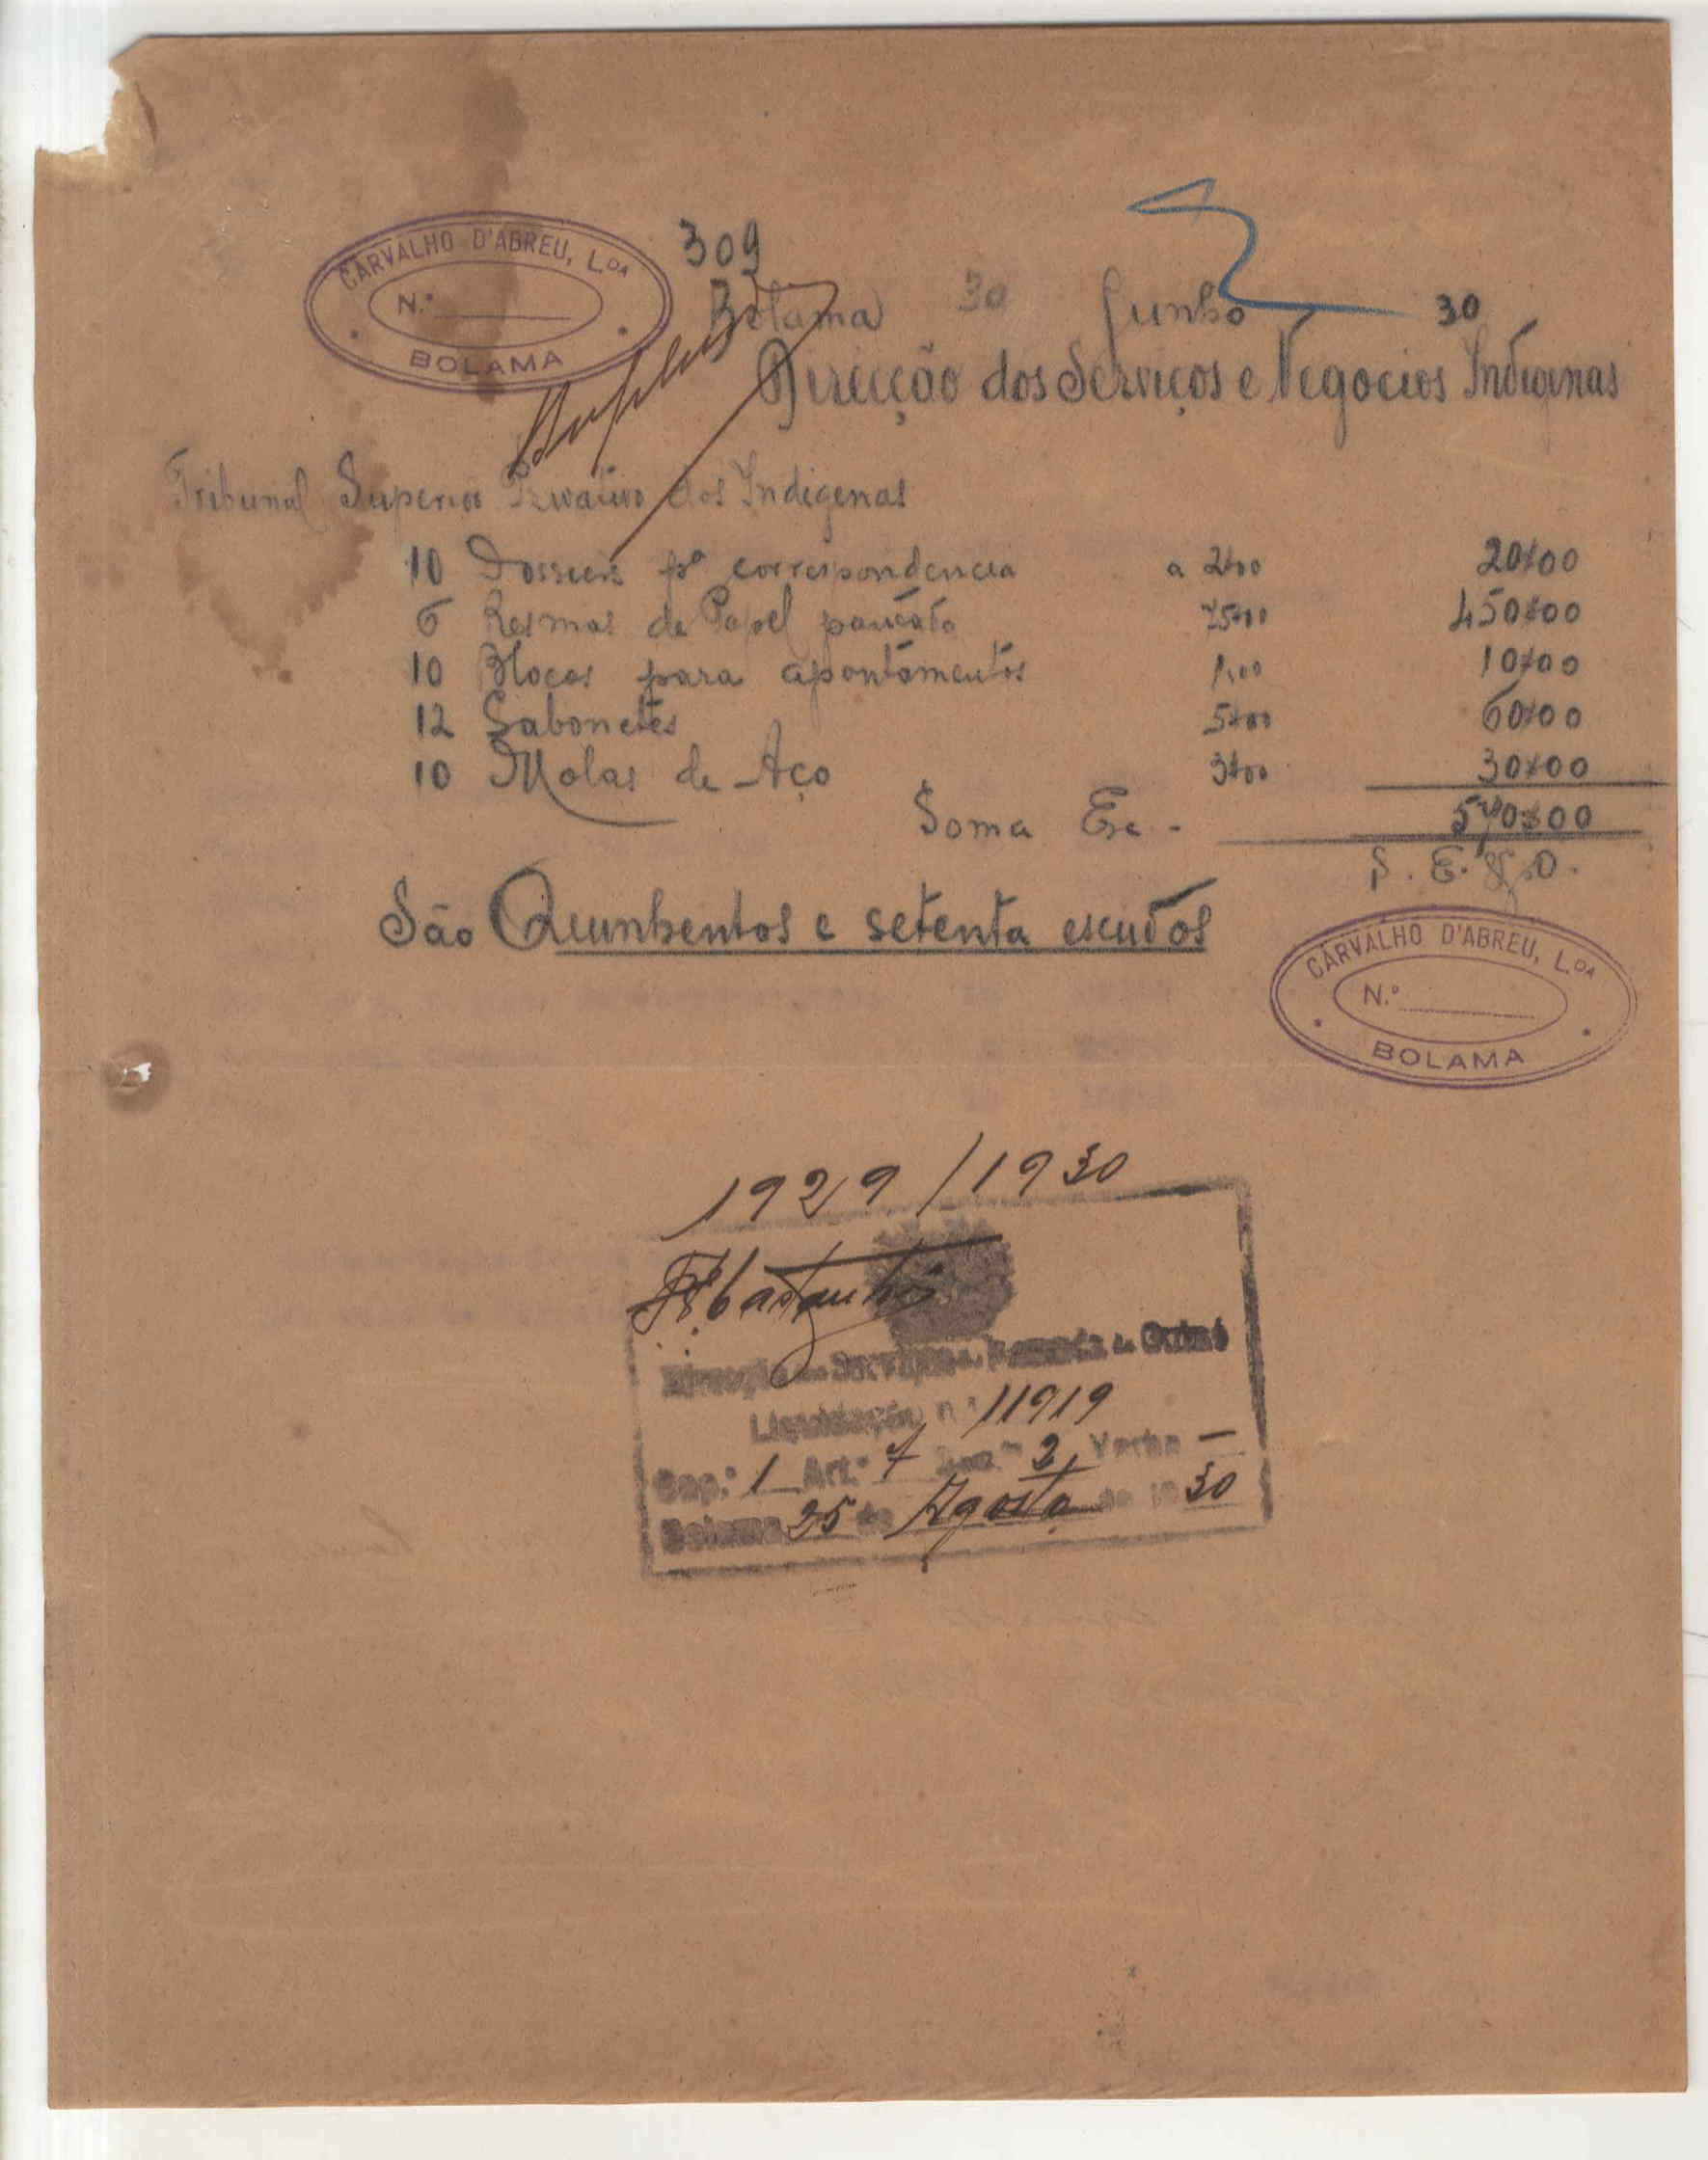 CARVALHO D'ABREU, L.DA
N.º
BOLAMA
309
Bolama 30 Junho 30
Direcção dos Serviços e Negocios Indigenas
Duplicado
Tribunal Superior Privativo dos Indigenas
10 Dossiers pª correspondencia a 2$00 20$00
6 Resmas de Papel pautado 75$00 450$00
10 Blocos para apontamentos 1$00 10$00
12 Sabonetes 5$00 60$00
10 Molas de Aço 3$00 30$00
Soma Esc - 570$00
S. E. & O.
São Quinhentos e setenta escudos
CARVALHO D'ABREU, L.DA
N.º
BOLAMA
1929/1930
Direcção dos Serviços de Fazenda da Guiné
Liquidação n.º 11919
Cap.º 1 Art.º 7 Num.º 2 Verba —
Bolama 25 de Agosto de 1930